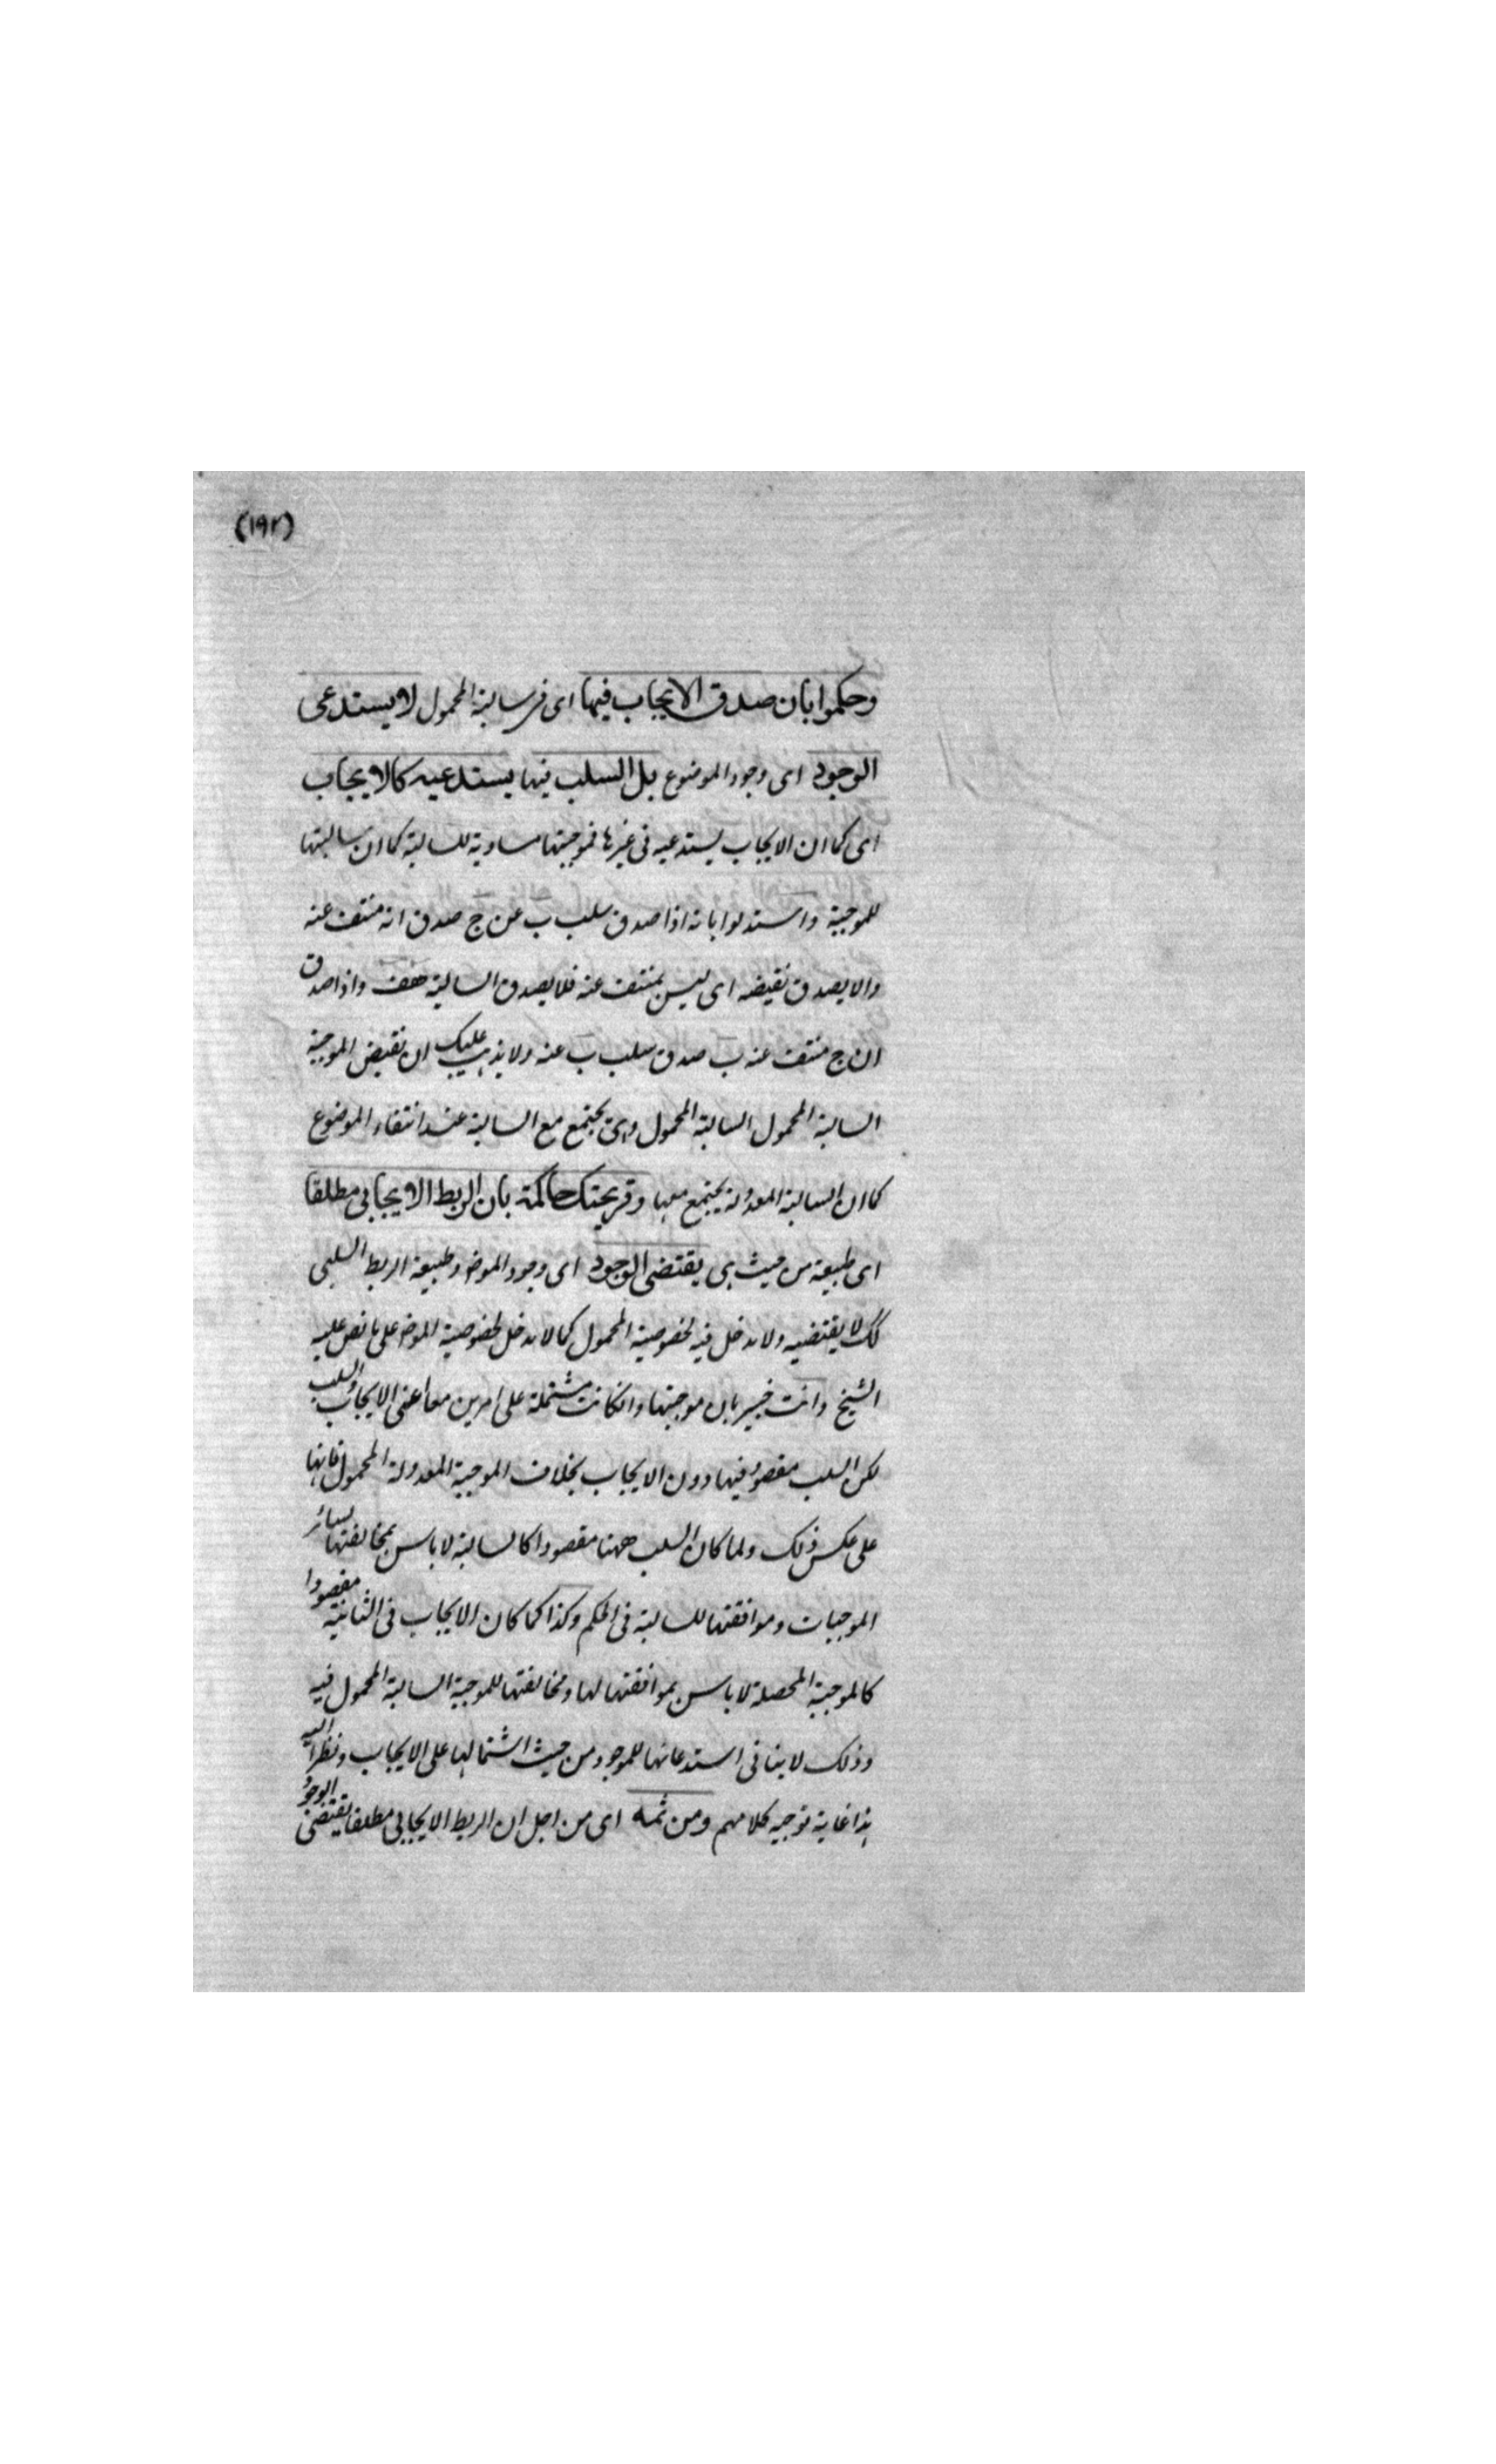 (١٩٢)
وحكموا بان صدق الايجاب فيها اى فى سالبة المحمول لا يستدعى
الوجود اى وجود الموضوع بل السلب فيها يستدعيه كالايجاب
اى كما ان الايجاب يستدعيه فى غيرها فموجبتها مساوية للسالبة كما ان سالبتها
للموجبة واستدلوا بانه اذا صدق سلب ب عن ج صدق انه منتف عنه
والا يصدق نقيضه اى ليس بمنتف عنه فلا يصدق السالبة هف واذا صدق
ان ج منتف عنه ب صدق سلب ب عنه ولا يذهب عليك ان نقيض الموجبة
السالبة المحمول السالبة المحمول وهى يجتمع مع السالبة عند انتفاء الموضوع
كما ان السالبة المعدولة يجتمع معها وقريحتك حاكمة بان الربط الايجابى مطلقا
اى طبيعة من حيث هى يقتضى الوجود اى وجود الموض وطبيعة الربط السلبى
لك لا يقتضيه ولا دخل فيه لخصوصية المحمول كما لا دخل لخصوصية الموض على ما نص عليه
الشيخ وانت خبير بان موجبتها وانكانت مشتملة على امرين معا اعنى الايجاب والسلب
لكن السلب مقصود فيها دون الايجاب بخلاف الموجبة المعدولة المحمول فانها
على عكس ذلك ولما كان السلب ههنا مقصودا كالسالبة لا باس بمخالفتها لسائر
الموجبات وموافقتها للسالبة فى الحكم وكذا كما كان الايجاب فى الثانية مقصودا
كالموجبة المحصلة لا باس بموافقتها لها ومخالفتها للموجبة السالبة المحمول فيه
وذلك لا ينافى استدعائها للوجود من حيث اشتمالها على الايجاب ونظرا اليه
هذا غاية توجيه كلامهم ومن ثمه اى من اجل ان الربط الايجابى مطلقا يقتضى الوجود